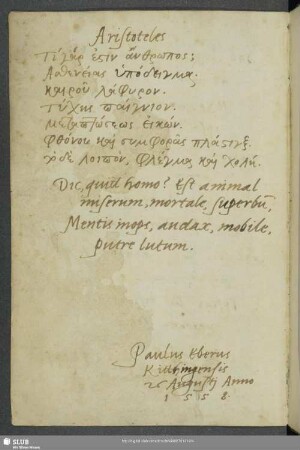 Aristoteles
Τί γάρ ἐστιν ἄνθρωπος;
Ἀσθενείας ὑπόδειγμα.
καιροῦ λάφυρον.
τύχης παίγνιον.
μεταπτώσεως εἰκών.
Φθόνου καὶ συμφορᾶς πλάστιγξ.
τὸ δὲ λοιπόν, φλέγμα καὶ χολή.
Dic, quid homo? Est animal
miserum, mortale, superbū,
Mentis inops, audax, mobile,
putre lutum.
Paulus Eberus
Kittingensis
26 Augusti Anno
1558.
SLUB
Wir führen Wissen.